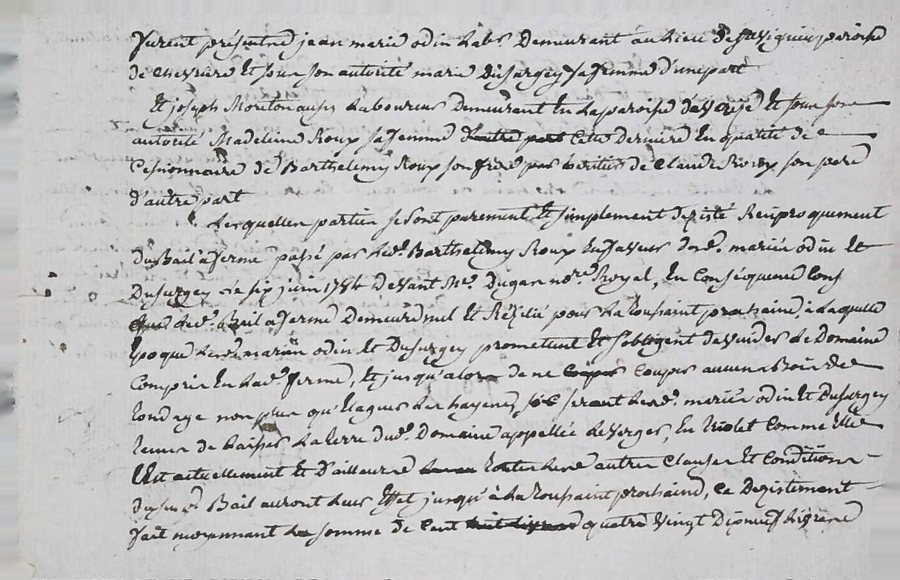 furent présentred jean marie odin Lab.r Demeurant au Lieu de paroise
de chevriere Et sous son autorité marie Dusurgey sa femme d'une part
Et joseph Mouton aussy Laboureur Demeurant En La paroise Et sous son
autorité Madeleine Roux sa femme d'autre part Cette Derniere En qualité de
Cessionnaire de Barthelemy Roux son frere heritier de Claude Roux son pere
d'autre part
Lesquelles parties se sont purement Et simplement desisté Reciproquement
du Bail a ferme passé par Led.t Barthelemy Roux En faveur d. mariés odin Et
Dusurgey six juin 1784 devant M.e Dugan no.re Royal, En Consequence
Led.t Bail a ferme Demeure nul Et Résilié pour La Toussaint prochaine, à Laquelle
Epoque Lesd. mariés odin Et Dusurgey promettent Et s'obligent de vuider Le Domaine
Compris En Lad.t ferme, Et jusqu'alors de ne Couper aucun Bois de
non plus qu'Elaguer Les hayes, seront Lesd.t mariés odin Et Dusurgey
tenus de Laisser La terre dud.t Domaine appellée Le verger, En Comme Elle
Est actuellement Et D'ailleurs Toutes Les autres Clauses Et Conditions
dususd.t Bail auront Leur Effet jusqu'à La Toussaint prochaine, Ce Desistement
fait moyennant La somme de Cent quatre vingt Dixneuf Livres